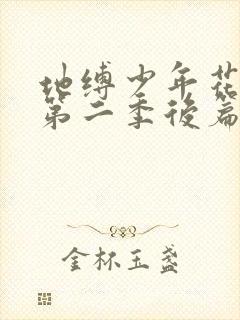 地缚少年花
第二季後篇
金杯玉盏